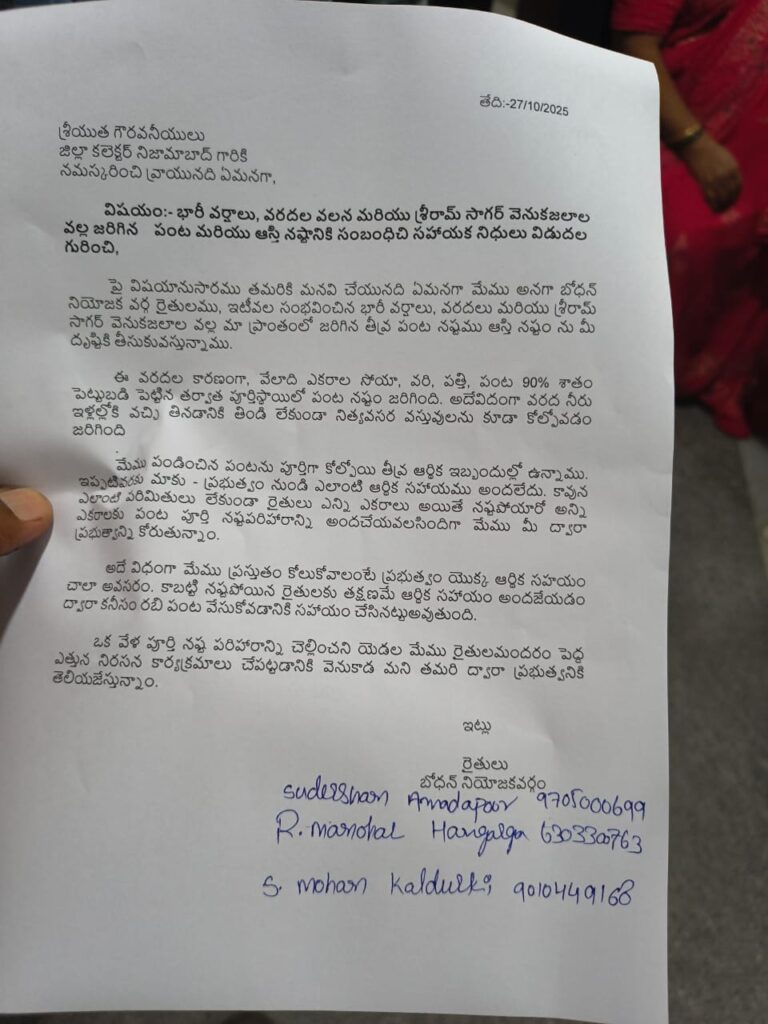 తేది:-27/10/2025
శ్రీయుత గౌరవనీయులు
జిల్లా కలెక్టర్ నిజామాబాద్ గారికి
నమస్కరించి వ్రాయునది ఏమనగా,
విషయం:- భారీ వర్షాలు, వరదల వలన మరియు శ్రీరామ్ సాగర్ వెనుకజలాల
వల్ల జరిగిన పంట మరియు ఆస్తి నష్టానికి సంబంధిచి సహాయక నిధులు విడుదల
గురించి,
పై విషయానుసారము తమరికి మనవి చేయునది ఏమనగా మేము అనగా బోధన్
నియోజక వర్గ రైతులము, ఇటీవల సంభవించిన భారీ వర్షాలు, వరదలు మరియు శ్రీరామ్
సాగర్ వెనుకజలాల వల్ల మా ప్రాంతంలో జరిగిన తీవ్ర పంట నష్టము ఆస్తి నష్టం ను మీ
దృష్టికి తీసుకువస్తున్నాము.
ఈ వరదల కారణంగా, వేలాది ఎకరాల సోయా, వరి, పత్తి, పంట 90% శాతం
పెట్టుబడి పెట్టిన తర్వాత పూర్తిస్థాయిలో పంట నష్టం జరిగింది. అదేవిదంగా వరద నీరు
ఇళ్లల్లోకి వచ్చి తినడానికి తిండి లేకుండా నిత్యవసర వస్తువులను కూడా కోల్పోవడం
జరిగింది
.
మేము పండించిన పంటను పూర్తిగా కోల్పోయి తీవ్ర ఆర్థిక ఇబ్బందుల్లో ఉన్నాము.
ఇప్పటివరకు మాకు - ప్రభుత్వం నుండి ఎలాంటి ఆర్థిక సహాయము అందలేదు. కావున
ఎలాంటి పరిమితులు లేకుండా రైతులు ఎన్ని ఎకరాలు అయితే నష్టపోయారో అన్ని
ఎకరాలకు పంట పూర్తి నష్టపరిహారాన్ని అందచేయవలసిందిగా మేము మీ ద్వారా
ప్రభుత్వాన్ని కోరుతున్నాం.
అదే విధంగా మేము ప్రస్తుతం కోలుకోవాలంటే ప్రభుత్వం యొక్క ఆర్థిక సహయం
చాలా అవసరం. కాబట్టి నష్టపోయిన రైతులకు తక్షణమే ఆర్థిక సహాయం అందజేయడం
ద్వారా కనీసం రబి పంట వేసుకోవడానికి సహాయం చేసినట్టుఅవుతుంది.
ఒక వేళ పూర్తి నష్ట పరిహారాన్ని చెల్లించని యెడల మేము రైతులమందరం పెద్ద
ఎత్తున నిరసన కార్యక్రమాలు చేపట్టడానికి వెనుకాడ మని తమరి ద్వారా ప్రభుత్వనికి
తెలియజేస్తున్నాం.
ఇట్లు
రైతులు
బోధన్ నియోజకవర్గం
Sudersham Amadapoor 9705000699
R. manohal Hangalga
S. mohan Kaldurki 9010449168